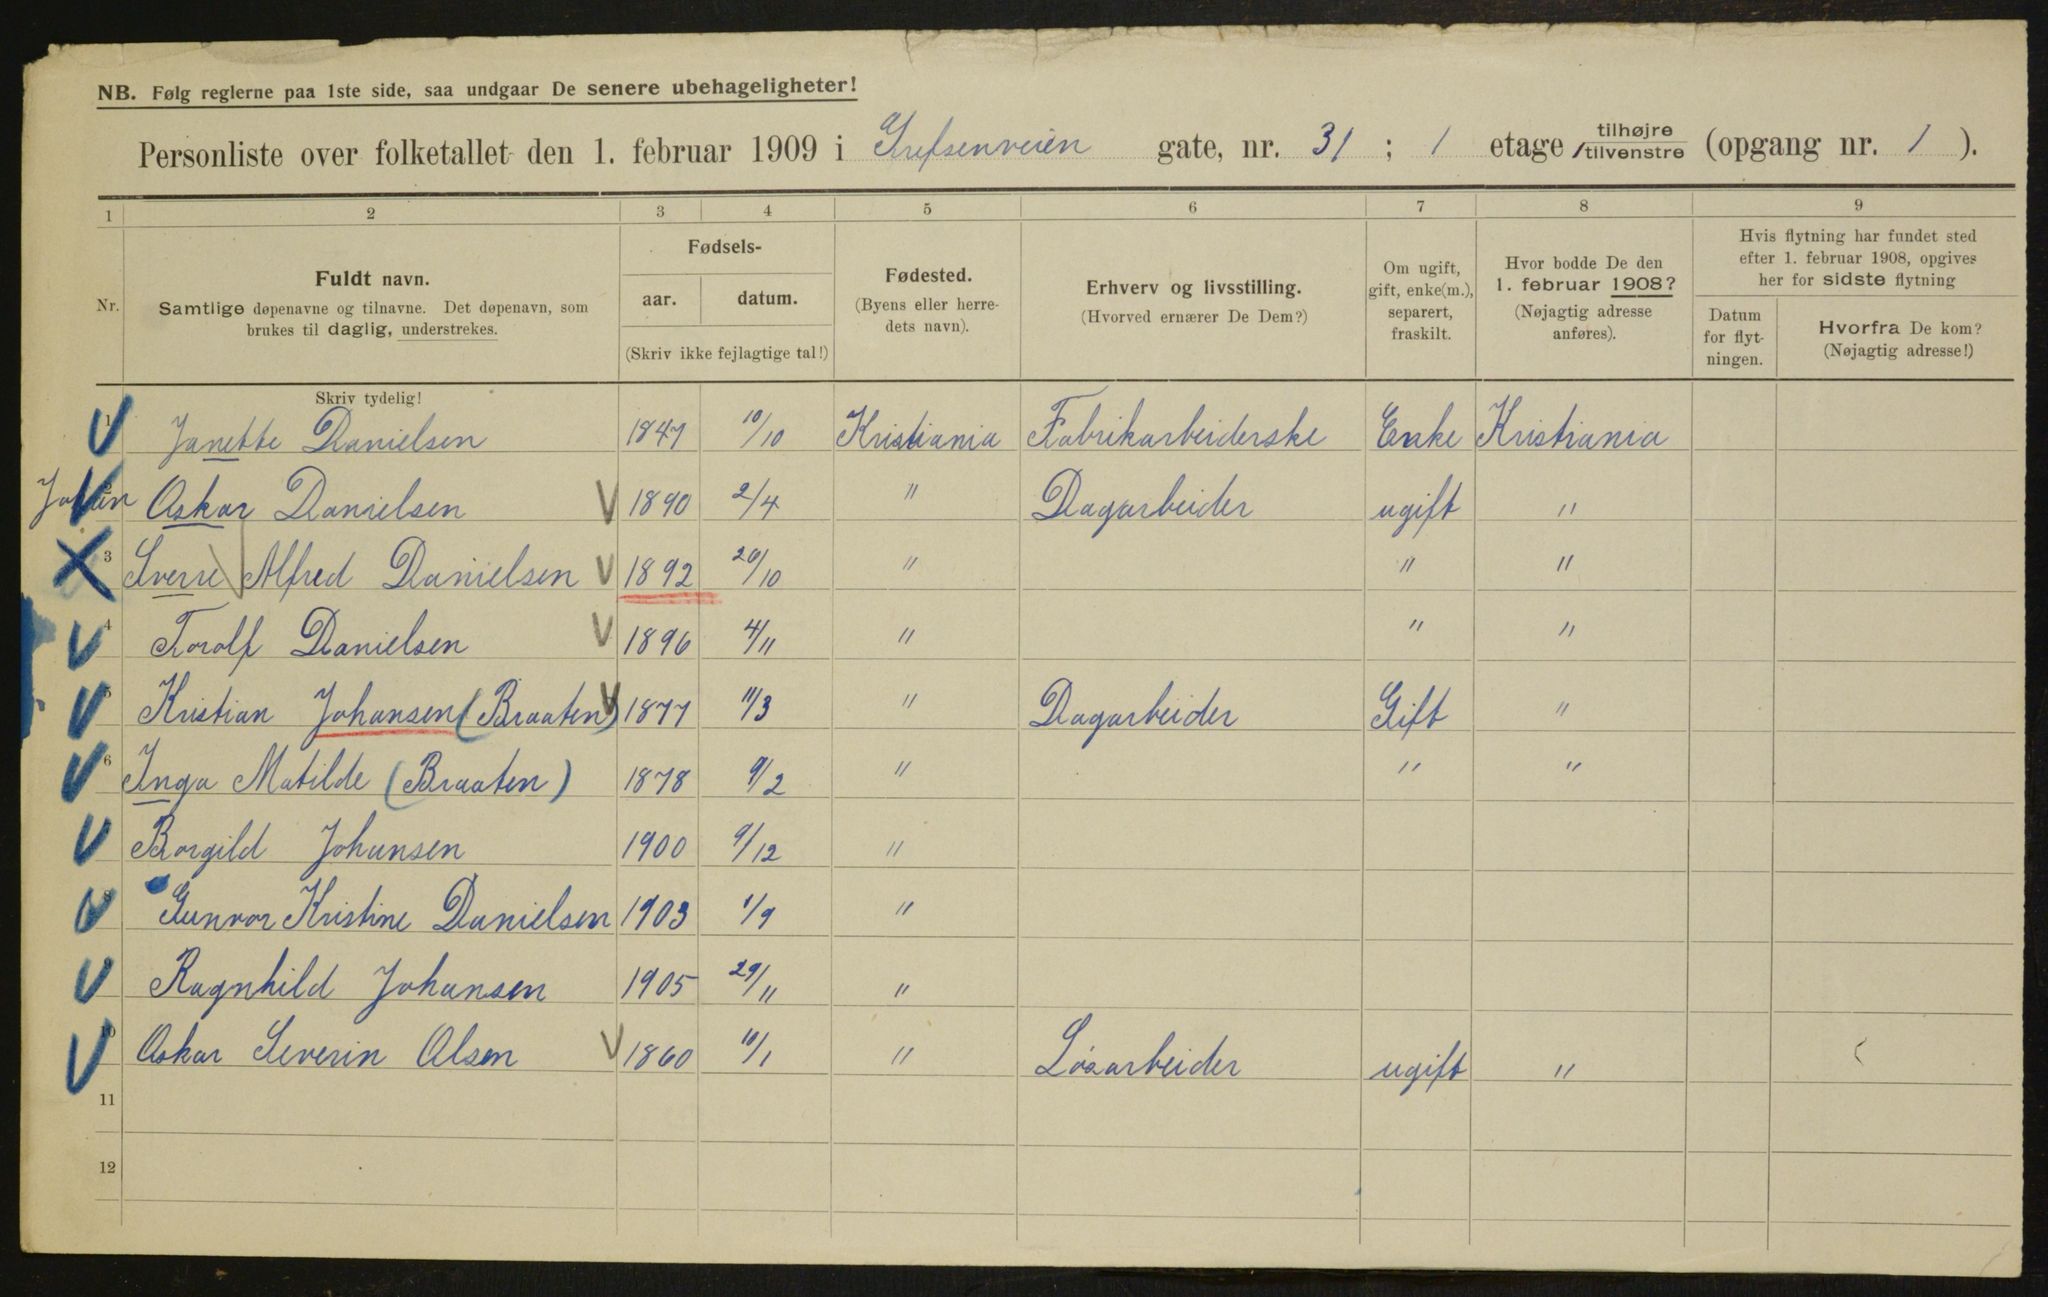 NB. Følg reglerne paa 1ste side, saa undgaar De senere ubehageligheter!
Personliste over folketallet den 1. februar 1909 i Grefsenveien gate, nr. 31 ; 1 etage tilhøjre / tilvenstre (opgang nr. 1 ).
1 2 3 4 5 6 7 8 9
Nr.
Fuldt navn.
Samtlige døpenavne og tilnavne. Det døpenavn, som
brukes til daglig, understrekes.
Fødsels-
aar. datum.
(Skriv ikke fejlagtige tal!)
Fødested.
(Byens eller herre-
dets navn).
Erhverv og livsstilling.
(Hvorved ernærer De Dem?)
Om ugift,
gift, enke(m.),
separert,
fraskilt.
Hvor bodde De den
1. februar 1908?
(Nøjagtig adresse
anføres).
Hvis flytning har fundet sted
efter 1. februar 1908, opgives
her for sidste flytning
Datum
for flyt-
ningen.
Hvorfra De kom?
(Nøjagtig adresse!)
Skriv tydelig!
1 Janette Danielsen 1847 10/10 Kristiania Fabrikarbeiderske Enke Kristiania
Johan Oskar Danielsen 1890 2/4 " Dagarbeider ugift "
3 Sverre Alfred Danielsen 1892 20/10 " " "
4 Torolf Danielsen 1896 4/11 " " "
5 Kristian Johansen (Braaten) 1877 11/3 " Dagarbeider Gift "
6 Inga Matilde (Braaten) 1878 9/2 " " "
Borgild Johansen 1900 9/12 "
8 Gunvor Kristine Danielsen 1903 1/9 "
9 Ragnhild Johansen 1905 29/11 "
10 Oskar Severin Olsen 1860 10/1 " Løsarbeider ugift "
11
12